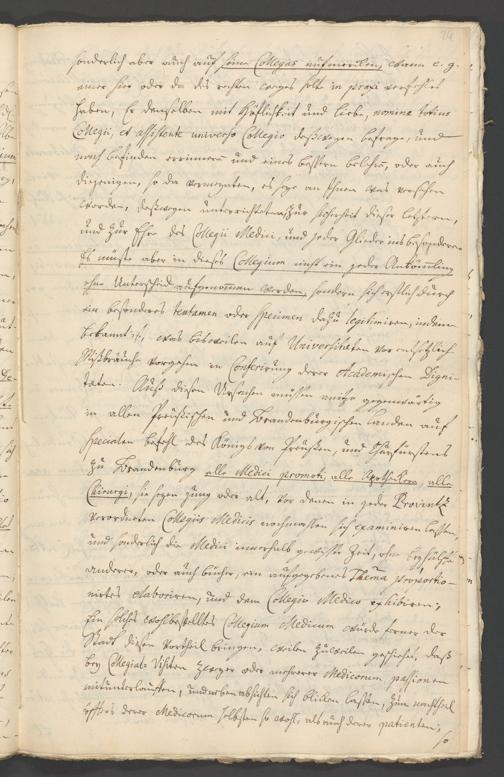 24
sonderlich aber auch auf seine Collegas aufmercken, wann e. g.
einer hier oder da des rechten weges solte in praxi verfehlet
haben, Er denselben mit Höfflichkeit und Liebe, nomine totius
Collegii, et assistente universo Collegio deßwegen befrage, und
nach befinden erinnern und eines bessern belehren, oder auch
diejenigen, so da vermeynten, es sey an Ihnen was versehen
worden, deßwegen unterrichteten zur sicherheit dieser letztern,
und zur Ehre des Collegii Medici, und jeder Glieder ins besondere.
Es müste aber in dieses Collegium nicht ein jeder Ankömmling
ohne Unterscheid aufgenommen werden, sondern sich erstlich durch
ein besonderes tentamen oder specimen dazu legitimiren, indeme
bekannt ist, was bisweilen auf Universitäten vor entsetzlich
Mißbräuche vorgehen in Conferirung derer Academischen Digni-
täten. Auß diesen Ursachen müssen gegenwärtig
in allen Preußischen und Brandenburgischen Landen auf
Specialen befehl des Königs von Preußen, und Churfürstens
zu Brandenburg alle Medici promoti, alle Apotheker, alle
Chirurgi, sie seyen jung oder alt, vor denen in jeder Provintz
verordneten Collegiis Medicis sich examiniren lassen,
und sonderlich die Medici innerhalb gewisser Zeit, ohne beyhülffe
anderer, oder auch bücher, ein aufgegebenes Thema proportio-
nirtes elaboriren, und dem Collegio Medico exhibiren;
Ein solches wohlbestelltes Collegium Medicum würde ferner der
Stadt diesen Vortheil bringen, weilen zuweilen geschiehet, daß
bey Collegial Visiten zweyer oder mehrerer Medicorum passionen
mitunterlauffen, und neben absichten sich blicken lassen, zum nachtheil
derer Medicorum selbsten so wohl, als auch derer patienten,
so